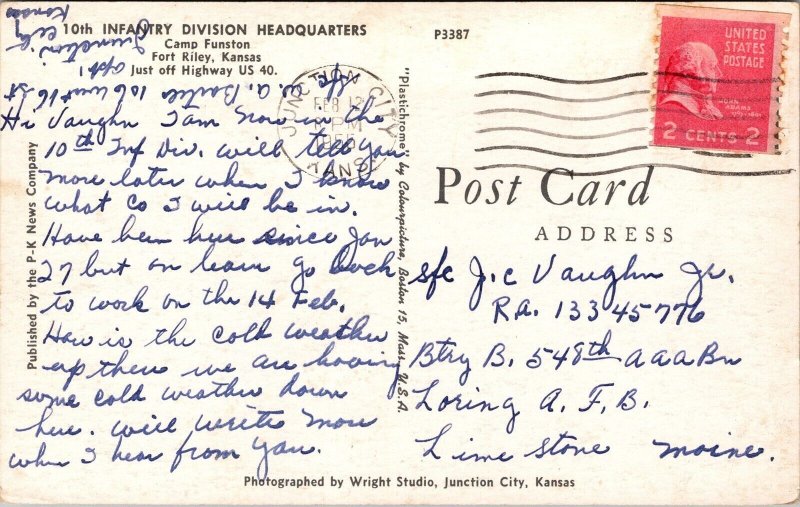 10th INFANTRY DIVISION HEADQUARTERS
Camp Funston
Fort Riley, Kansas
Just off Highway US 40.
P3387
Sfc W. A. Bartles 106 West 16 St
Apt 1
Junction City
Kansas
JUNCTION CITY
FEB 12
PM
KANS.
UNITED
STATES
POSTAGE
JOHN
ADAMS
2 CENTS 2
Hi Vaughn I am now in the
10th Inf Div. will tell you
more later when I know
what Co I will be in.
Have been here since Jan
27 but on leave go back
to work on the 14 Feb.
How is the cold weather
up there we are having
some cold weather down
here. will write more
when I hear from you.
Published by the P-K News Company
"Plastichrome" by Colourpicture, Boston 15, Mass., U.S.A.
Post Card
ADDRESS
sfc J.C Vaughn Jr.
R.A. 133 45 776
Btry B. 548th AAA Bn
Loring A. F. B.
Lime stone Maine.
Photographed by Wright Studio, Junction City, Kansas